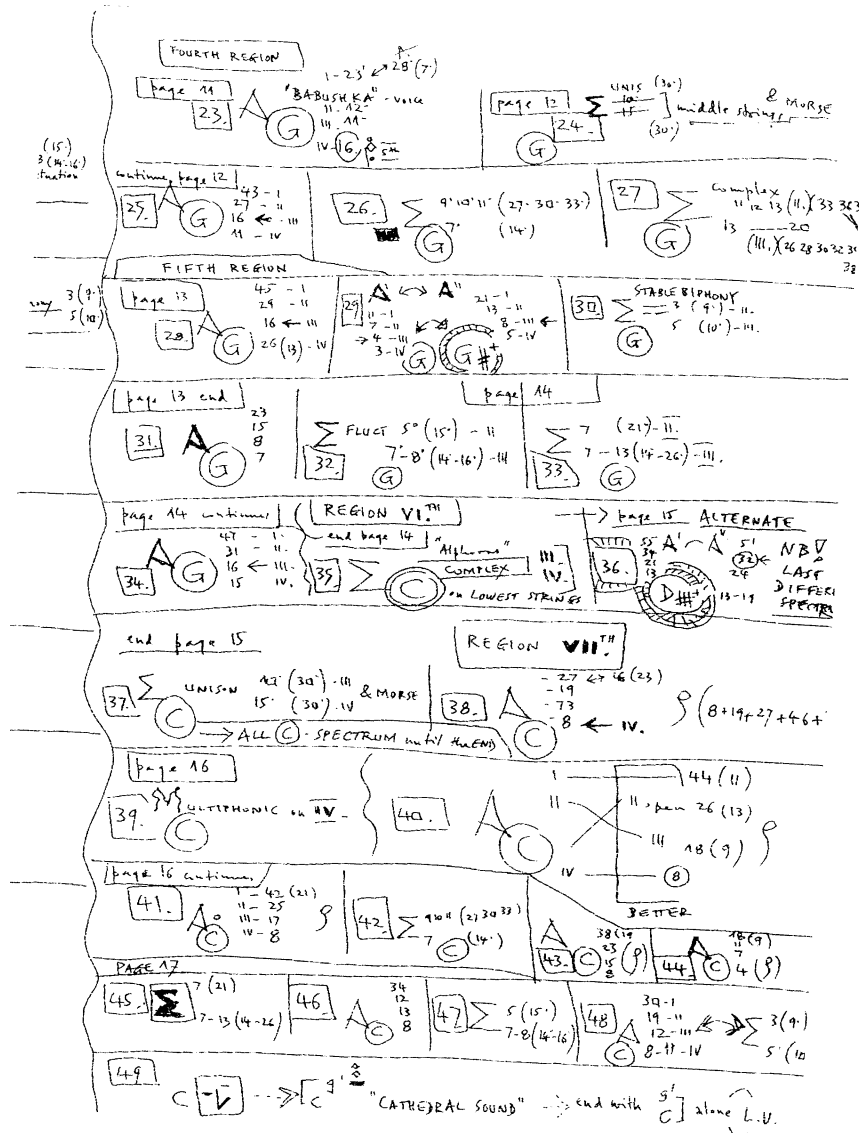 FOURTH REGION
page 11
1-23' ↔ 28'(7.)
"BABUSHKA" - voice
23. A G
II - 12-
III 11-
IV-16. 5th
page 12 Σ UNIS (30.)
24. (30.) ] middle strings & MORSE
G
(15.)
3 (14-16)
continue page 12
25. A G
43 - I
27 - II
16 ← III
11 - IV
26. Σ 9' 10' 11' (27. 30. 33.)
7. (14.)
G
27 Σ complex
11 12 13 (II.)(33 36 3
13 — 20
(III.)(26 28 30 32 3
38
G
FIFTH REGION
3 (9.)
5 (10.)
page 13
28. A G
45 - I
29 - II
16 ← III
26 (13) - IV
29 A' ↔ A''
11 - I
7 - II
→ 4 - III
3 - IV
G
21 - I
13 - II
8 - III ←
5 - IV
G#+
30. Σ STABLE BIPHONY
= 3 (9.) - II.
5 (10.) - III.
G
page 13 end
31. A G
23
15
8
7
page 14
32. Σ FLUCT 5° (15.) - II
7°-8° (14.-16.) - III
G
33. Σ 7 (21) - II.
7 - 13 (14-26.) - III.
G
page 14 continues
34. A G
47 - I.
31 - II.
16 ← III.
15 IV.
REGION VI.TH
end page 14
35. Σ "Alphorns"
COMPLEX III. IV.
C on LOWEST STRINGS
→ page 15 ALTERNATE
36. 55 A' - A'' 51
34
21
13
32 ←
24
13-19
D#+
NB!
LAST
DIFFER
SPECTR
end page 15
37. Σ UNISON (30.) - III
15. (30.) - IV & MORSE
C
→ ALL C - SPECTRUM until the END
REGION VII.TH
38. A C
- 27 ↔ 46 (23)
- 19
- 73
- 8 ← IV.
ρ (8+19+27+46+
page 16
39. MULTIPHONIC on IV -
C
40. A C
I
II
III
IV
44 (11)
II, open 26 (13)
18 (9)
8
ρ
BETTER
page 16 continues
41. A° C
I - 42 (21)
II - 25
III - 17
IV - 8
ρ
42. Σ 9 10 11 (27 30 33)
7 (14.)
C
43. A C
38 (19
23
15
8
(ρ)
44. A C
18 (9)
11
7
4 (ρ)
PAGE 17
45. Σ 7 (21)
7-13 (14-26)
46. A C
34
12
13
8
47. Σ 5 (15.)
7-8 (14-16)
48. A C
30 - I
19 - II
12 - III
8 - II - IV
↔ Σ 3 (9.)
5 (10
49
C -V ---> [ C g' "CATHEDRAL SOUND" --> end with g' C ] alone L.V.